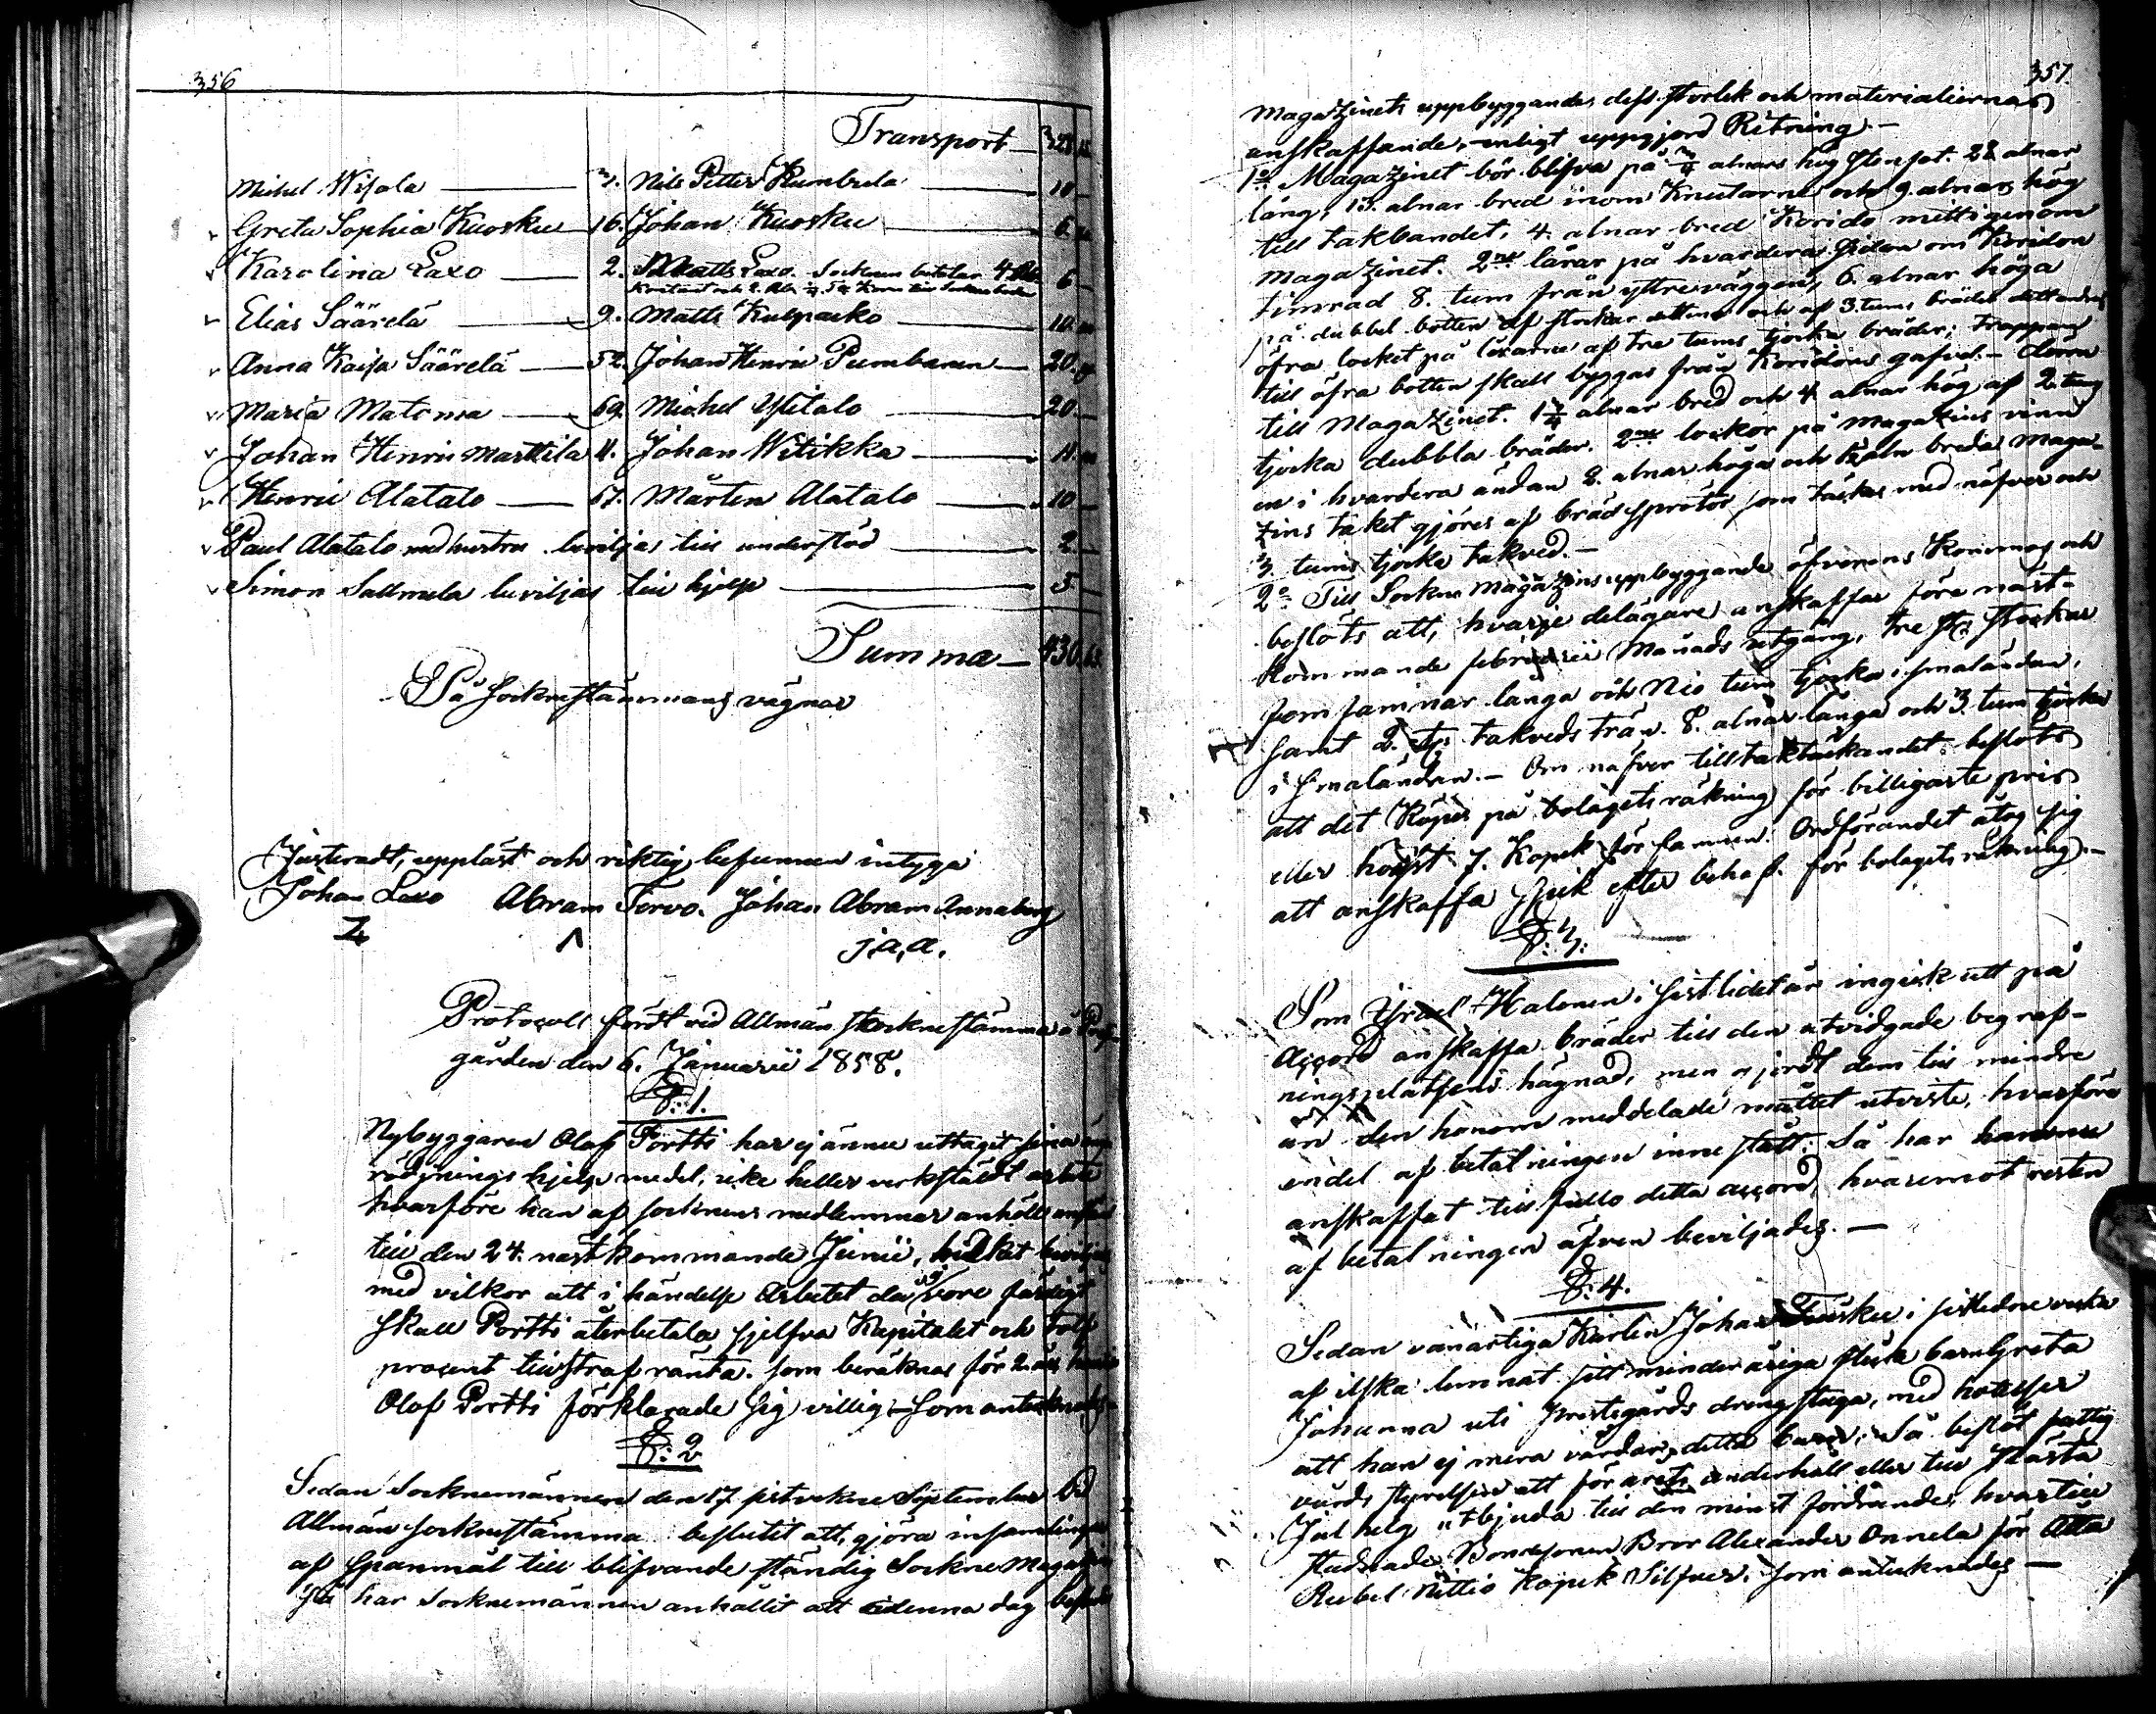 356
Transport — 328
Michel Wisala — 3. Nils Petter Kumbula — 10 —
Greta Sophia Kuosku 16. Johan Kuosku — 6
Karolina Laxo — 2. Matts Laxo. Socknen betalar 4 Rub. — 6 —
Elias Säärelä — 9. Matts Kulpacko — 10
Anna Kaisa Säärelä — 52. Johan Henric Pumbanen — 20.
Maria Matoma — 69. Michel Ylitalo — 20 —
Johan Henric Marttila 11. Johan Witikka — 11
Henric Alatalo — 67. Mårten Alatalo — 10 —
Paul Alatalo med hustru beviljas till understöd — 2 —
Simon Sallmela beviljas till hjelp — 5 —
Summa — 430.
På Sockenstämmans vägnar
Justeradt, uppläst och riktig befunnen intyga
Johan Laxo Abram Torvo. Johan Abram Annaberg
J.A.A.
Protocoll fördt vid Allmän Sockenstämma å
gården den 6. Januarii 1858.
§: 1.
Nybyggaren Olof Portti har ej ännu uttagit sina
rödjnings hjelpmedel, icke heller verkstäldt arbete
hvarföre han af socknens medlemmar anhöll
till den 24. nästkommande Junii, hvilket
med vilkor att i händelse Arbetet da ej vore färdigt
skall Portti återbetala sjelfva Kapitalet och tolf
procent till straf ränta. som beräknas för 2. år
Olof Portti förklarade Sig villig — som antecknades
§: 2
Sedan Socknemännen den 17 sistvekne September
Allmän sockenstämma beslutit att, gjöra insamlingar
af Spanmål till blifvande ständig Sockne Magazin
Så har Socknemännen anhållit att denna dag
357
Magazinets uppbyggande, dess storlek och materialiernas
anskaffande, enligt uppgjord Ritning. —
1:o Magazinet bör blifva på 3/4 alnars hög stenfot. 22 alnar
lång, 13. alnar bred inom Knutarne och 9. alnar hög
till takbandet, 4. alnar bred Korido mitt igenom
Magazinet. 2ne lårar på hvardera sidan om Koridon
timrad 8. tum från yttre väggen, 6. alnar höga
på dubbel botten af stockar och af 3. tums bräder
öfra locket på lårarne af tre tums tjocka bräder; trappan
till öfra botten skall byggas från Koridons gafvel. — dörrn
till Magazinet. 1 3/4 alnar bred och 4 alnar hög af 2 tum
tjocka dubbla bräder. 2ne luckor på Magazins vinn
en i hvardera ändan 2. alnar höga och aln breda Maga-
zins taket gjöres af bräd som täckes med näfver och
3 tums tjocka takved. —
2o Till Sockne Magazins uppbyggande öfverens Kommos och
beslöts att, hvarje delägare anskaffar före näst-
kommande februarii Månads utgång, tre st. stockar
fem famnar långa och Nio tum tjocka i smaländan,
samt 2. st. takveds trän. 8. alnar långa och 3. tum tjocka
i smaländan. — Om näfver till taktäckandet beslöts
att det Köpes på bolagets räkning för billigaste pris
eller högst 7. Kopek för famnen. Ordförandet åtog sig
att anskaffa Spik efter behof. för bolagets räkning —
§: 3:
Som Israel Halonen i sistlidet år ingick att på
Accord anskaffa bräder till den utvidgade begraf-
ningsplatsens hägnad, men gjordt dem till mindre
än den honom meddelade måttet utviste, hvarföre
endel af betalningen innestått. Så har
anskaffat till fullo detta accord, hvaremot resten
af betalningen äfven beviljades. —
§: 4.
Sedan vanartiga Karlen Johan i sistledne vecka
af ilska lemnat sitt minderåriga flicka barn Greta
Johanna uti Prestegårds drengstuga, med hotelser
att han ej mera vårdar detta barn; Så beslöt fattig
vårds styrelsen att för årets underhåll eller till nästa
Jul helg utbjuda till den minst fordrande, hvartill
stadnade Bondesonen Bror Alexander Onnela för Åtta
Rubel Nittio Kopek Silfver. som antecknades —